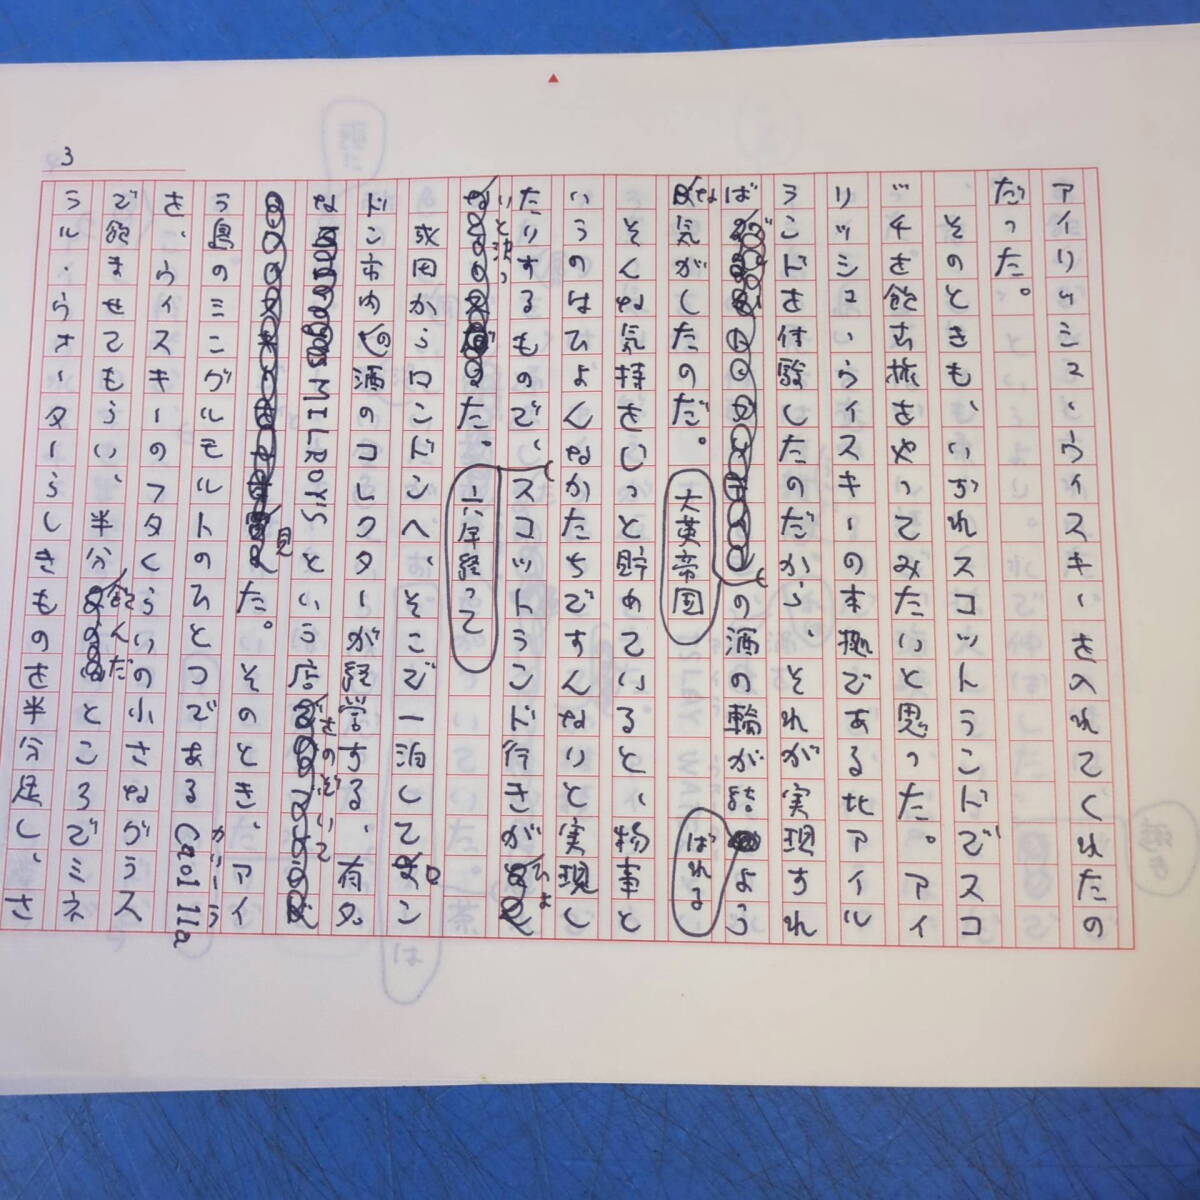 3
アイリッシュ・ウィスキーを入れてくれたの
だった。
そのときも、いずれスコットランドでスコ
ッチを飲む旅をやってみたいと思った。アイ
リッシュ・ウイスキーの本拠である北アイル
ランドを体験したのだから、それが実現すれ
ば大英帝国の酒の輪が結ばれるよう
な気がしたのだ。
そんな気持をじっと貯めていると、物事と
いうのはひょんなかたちですんなりと実現し
たりするもので、六年経ってスコットランド行きがひょ
いと決った。
成田からロンドンへ、そこで一泊してロン
ドン市内の酒のコレクターが経営する、有名
な MILROY'S という店をのぞいて
見た。そのとき、アイ
ラ島のシングルモルトのひとつである Caol Ila カリーラ
を、ウイスキーのフタくらいの小さなグラス
で飲ませてもらい、半分飲んだところでミネ
ラル・ウォーターらしきものを半分足し、さ